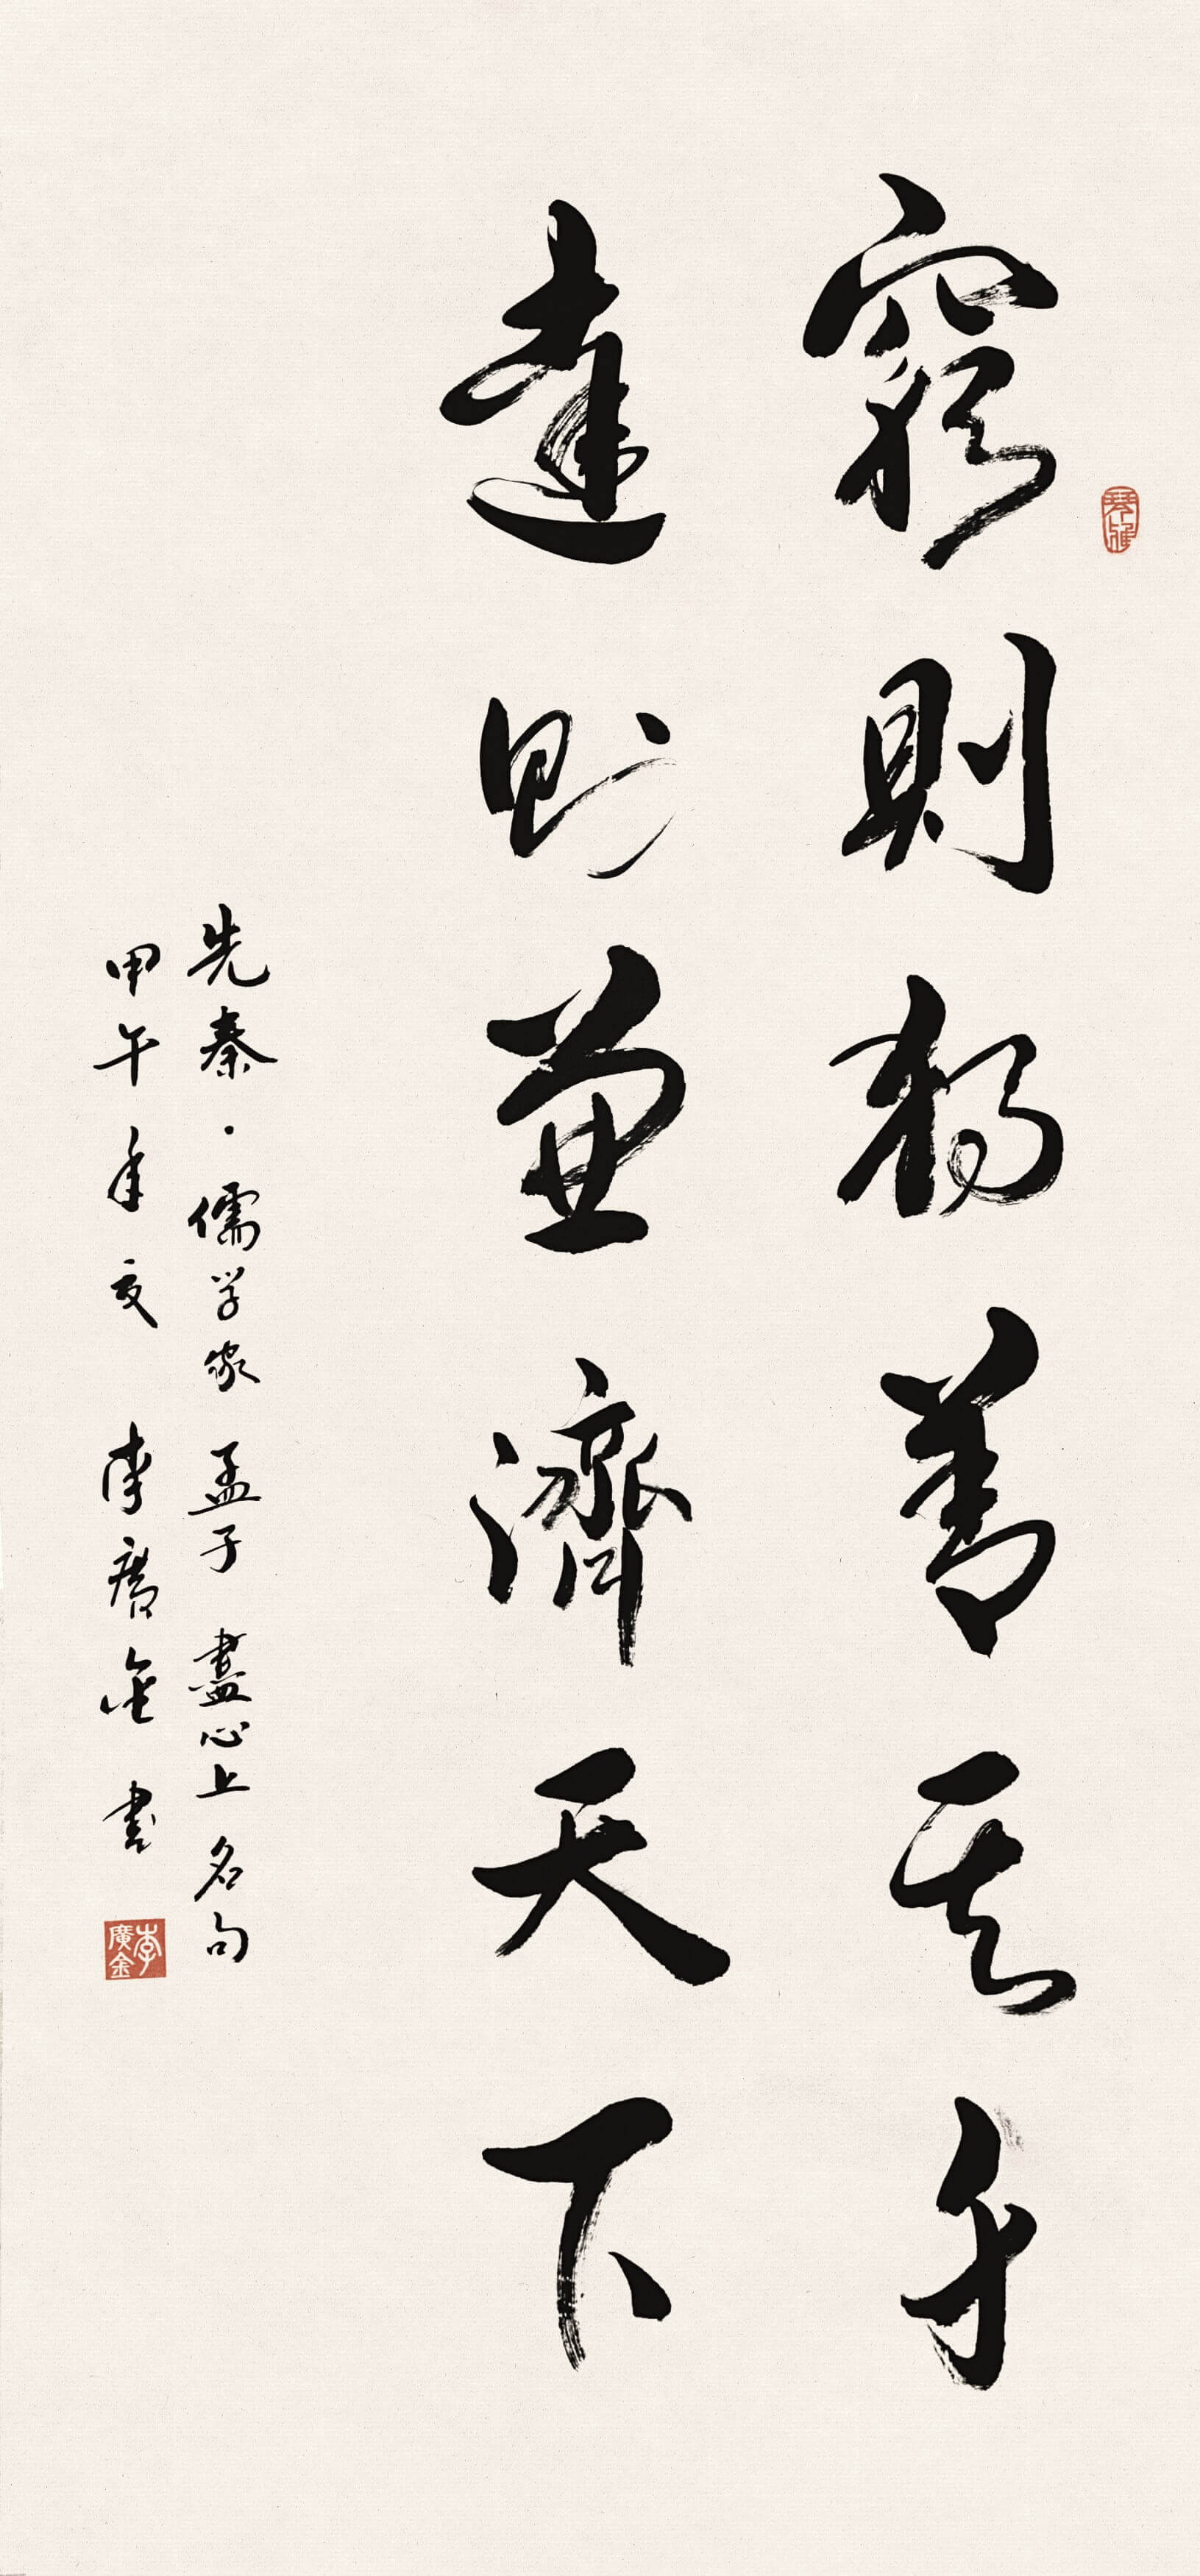 窮則獨善其身
達則兼濟天下
先秦·儒学家 孟子 盡心上 名句
甲午年夏 李廣金 書
李廣金